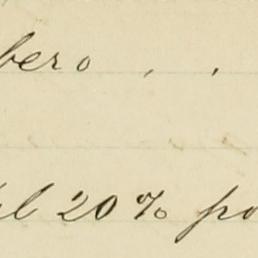 bero . .
el 20% po